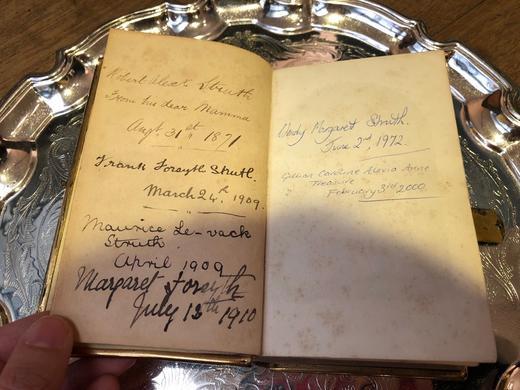 Robert Alexr. Struth
From his dear Mamma
Augt. 31st 1871
Frank Forsyth Struth.
March 24th. 1909.
Maurice Le-vack
Struth.
April 1909
Margaret Forsyth
July 13th 1910
Wendy Margaret Struth.
June 2nd, 1972.
Gillian Caroline Alexia Anne
Treasure
February 3rd 2000